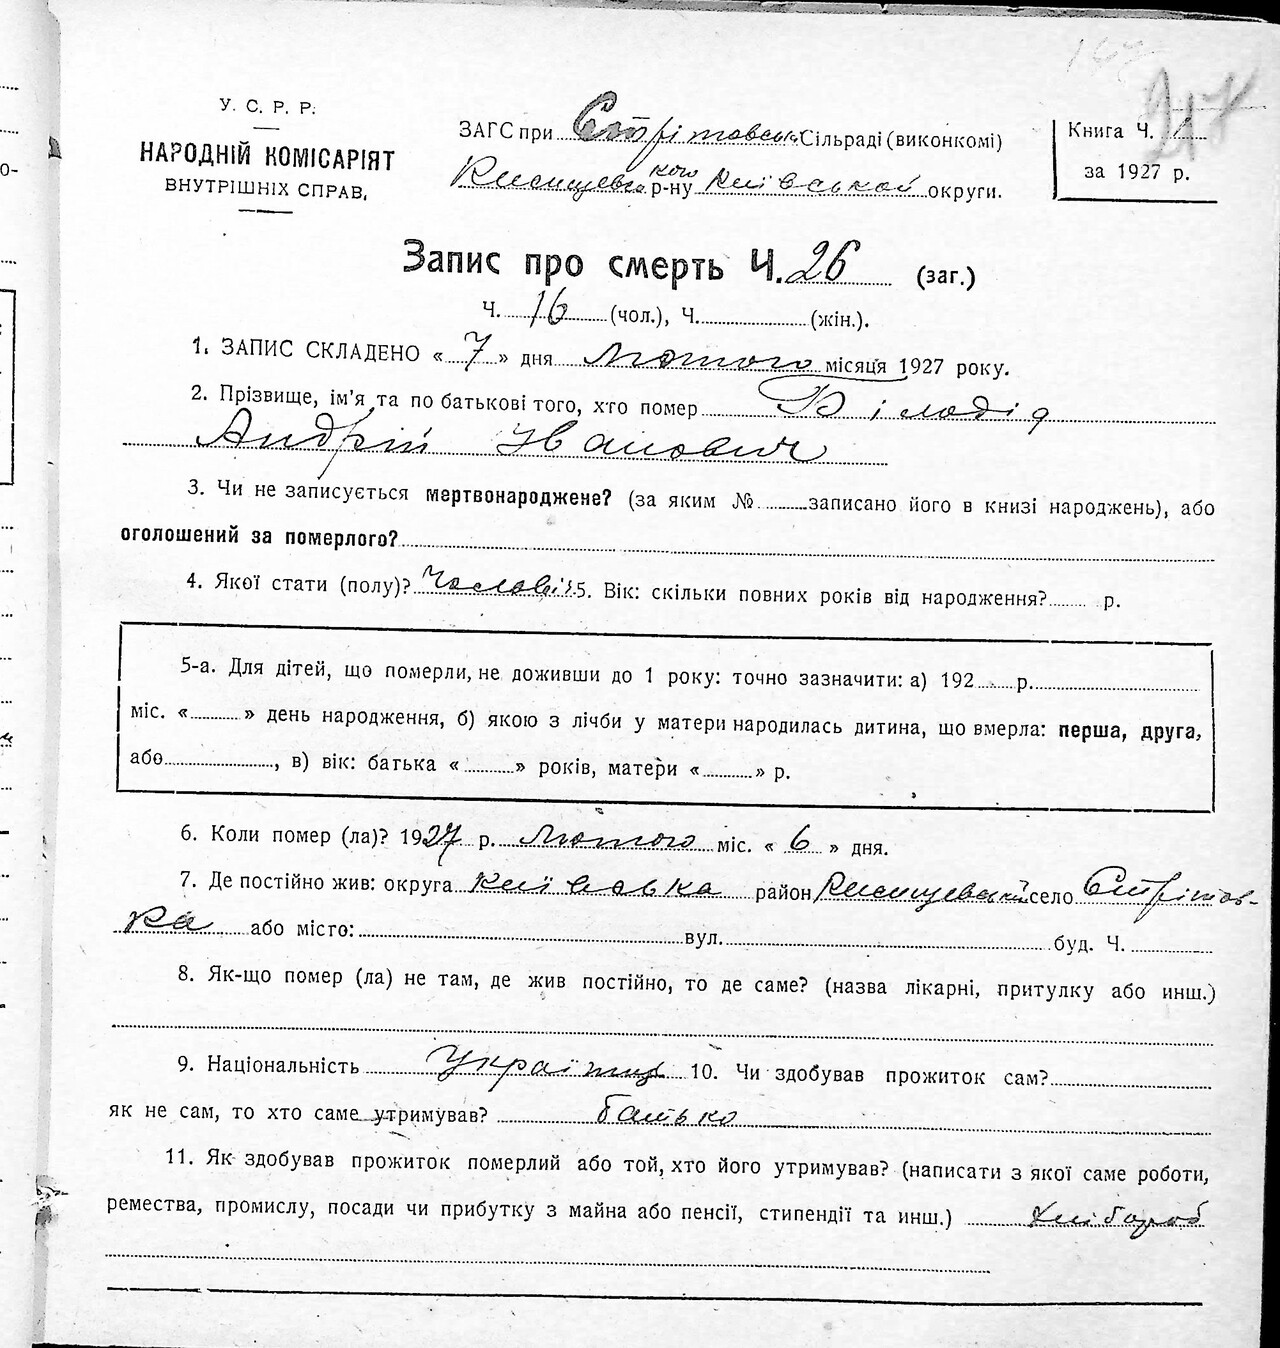 217
У. С. Р. Р.
НАРОДНІЙ КОМІСАРІЯТ
ВНУТРІШНІХ СПРАВ.
ЗАГС при Стрітовськ. Сільраді (виконкомі)
р-ну Київської округи.
Книга Ч. 1
за 1927 р.
Запис про смерть Ч. 26 (заг.)
Ч. 16 (чол.), Ч. (жін.).
1. ЗАПИС СКЛАДЕНО « 7 » дня Лютого місяця 1927 року.
2. Прізвище, ім'я та по батькові того, хто помер Білодід
Андрій Іванович
3. Чи не записується мертвонароджене? (за яким № записано його в книзі народжень), або
оголошений за померлого?
4. Якої стати (полу)? Чоловіч 5. Вік: скільки повних років від народження? р.
5-а. Для дітей, що померли, не доживши до 1 року: точно зазначити: а) 192 р.
міс. « » день народження, б) якою з лічби у матери народилась дитина, що вмерла: перша, друга,
або , в) вік: батька « » років, матери « » р.
6. Коли помер (ла)? 1927 р. Лютого міс. « 6 » дня.
7. Де постійно жив: округа Київська район село Стрітов-
ка або місто: вул. буд. Ч.
8. Як-що помер (ла) не там, де жив постійно, то де саме? (назва лікарні, притулку або инш.)
9. Національність Українець 10. Чи здобував прожиток сам?
як не сам, то хто саме утримував? батько
11. Як здобував прожиток померлий або той, хто його утримував? (написати з якої саме роботи,
ремества, промислу, посади чи прибутку з майна або пенсії, стипендії та инш.) хлібороб